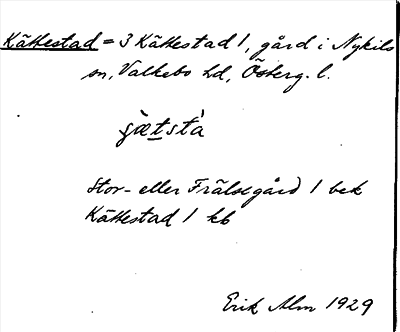 Kättestad = 3 Kättestad 1, gård i Nykils
sn, Valkebo hd, Österg. l.
Stor- eller Frälsegård 1 bek
Kättestad 1 kb
Erik Alm 1929